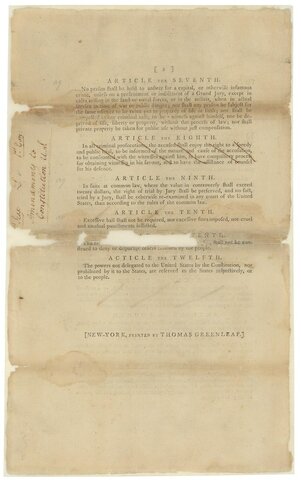 [ 2 ]
ARTICLE THE SEVENTH.
No person shall be held to answer for a capital, or otherwise infamous
crime, unless on a presentment or indictment of a Grand Jury, except in
cases arising in the land or naval forces, or in the militia, when in actual
service in time of war or public danger; nor shall any person be subject for
the same offence to be twice put in jeopardy of life or limb; nor shall be
compelled in any criminal case, to be a witness against himself, nor be de-
prived of life, liberty or property, without due process of law; nor shall
private property be taken for public use without just compensation.
ARTICLE THE EIGHTH.
In all criminal prosecutions, the accused shall enjoy the right to a speedy
and public trial, to be informed of the nature and cause of the accusation,
to be confronted with the witnesses against him, to have compulsory process
for obtaining witnesses in his favour, and to have the assistance of counsel
for his defence.
ARTICLE THE NINTH.
In suits at common law, where the value in controversy shall exceed
twenty dollars, the right of trial by jury shall be preserved, and no fact,
tried by a jury, shall be otherwise re-examined in any court of the United
States, than according to the rules of the common law.
ARTICLE THE TENTH.
Excessive bail shall not be required, nor excessive fines imposed, nor cruel
and unusual punishments inflicted.
shall not be con-
strued to deny or disparage others retained by the people.
ARTICLE THE TWELFTH.
The powers not delegated to the United States by the Constitution, nor
prohibited by it to the States, are reserved to the States respectively, or
to the people.
[NEW-YORK, PRINTED BY THOMAS GREENLEAF.]
Amendments to
Constitution U.S.